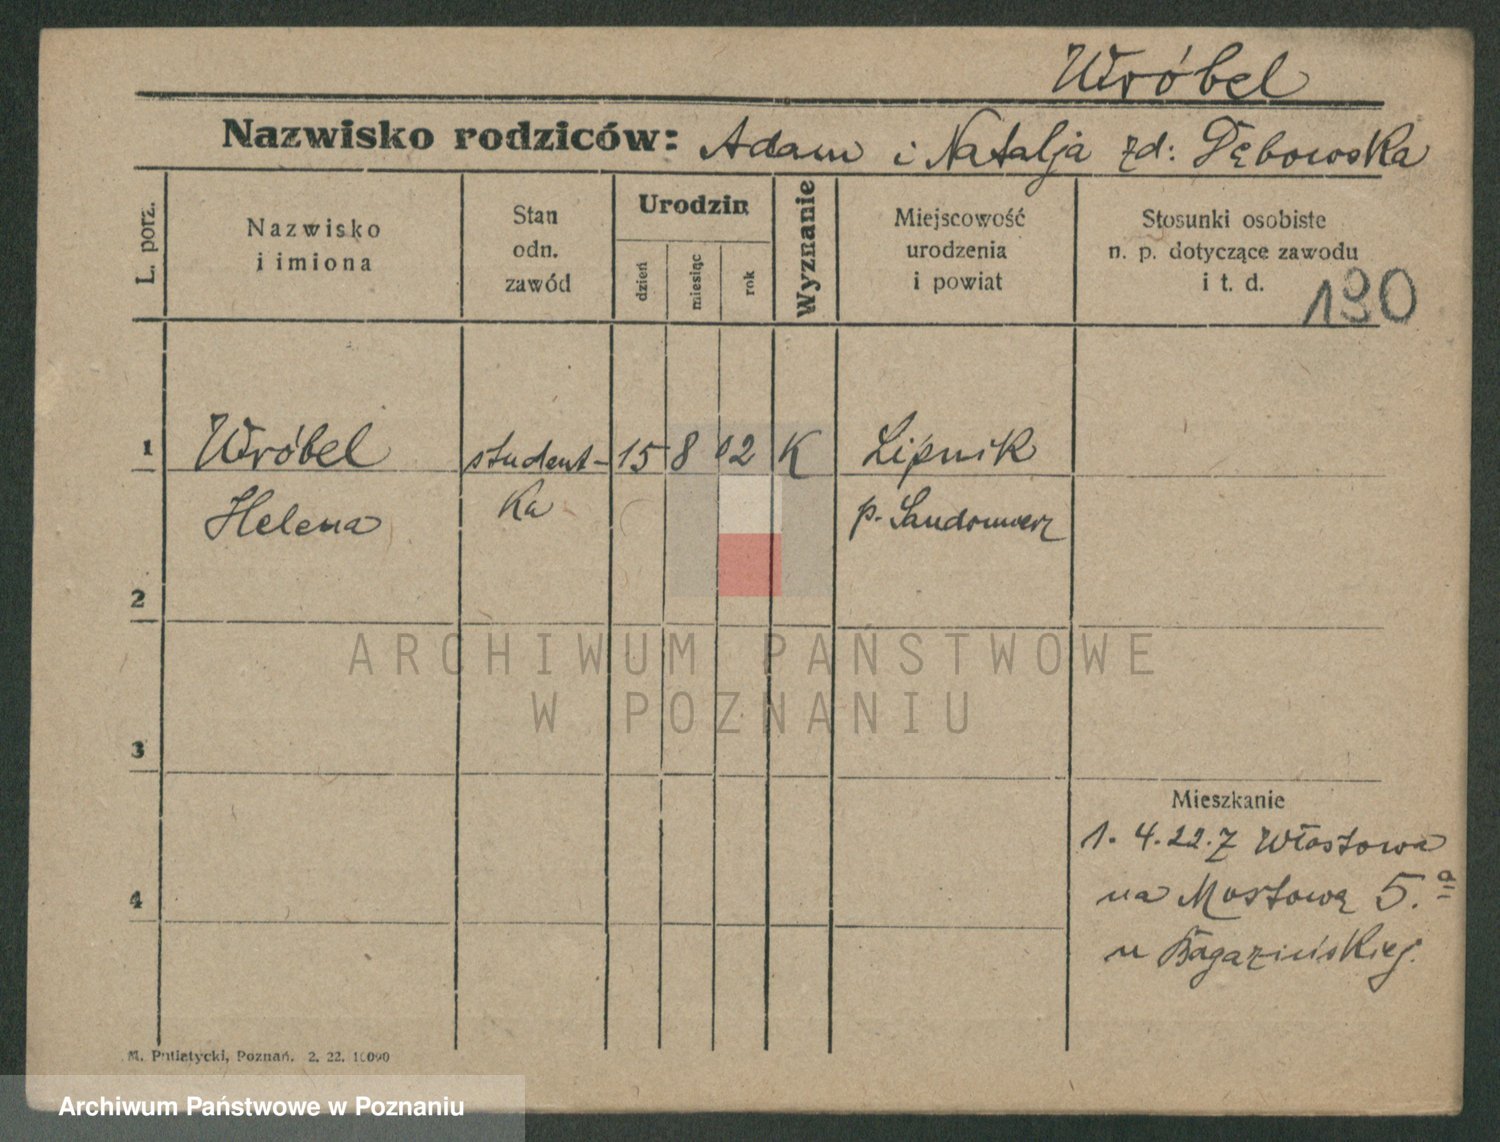 Wróbel
Nazwisko rodziców: Adam i Natalja zd: Dębowska
L. porz.
Nazwisko
i imiona
Stan
odn.
zawód
Urodzin
dzień
miesiąc
rok
Wyznanie
Miejscowość
urodzenia
i powiat
Stosunki osobiste
n. p. dotyczące zawodu
i t. d.
190
1 Wróbel student- 15 8 02 K Lipnik
Helena ka p. Sandomierz
2
ARCHIWUM PAŃSTWOWE
W POZNANIU
3
Mieszkanie
1. 4. 22. z Włostowa
4
na Mostową 5.a
u Bagazińskiej.
M. Putiatycki, Poznań. 2. 22. 10000
Archiwum Państwowe w Poznaniu